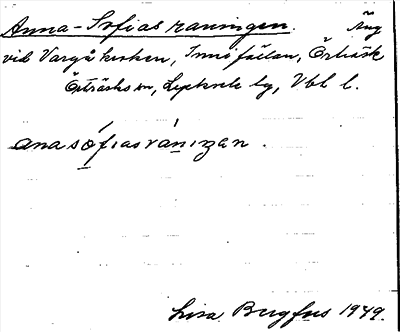 Anna-Sofias raningen. Äng
vid Vargåkroken, Inni fällan, Örträsk
Örträsks sn, Lycksele lg, Vbl l.
anasófiasránizan.
Lisa Bergfors 1949.